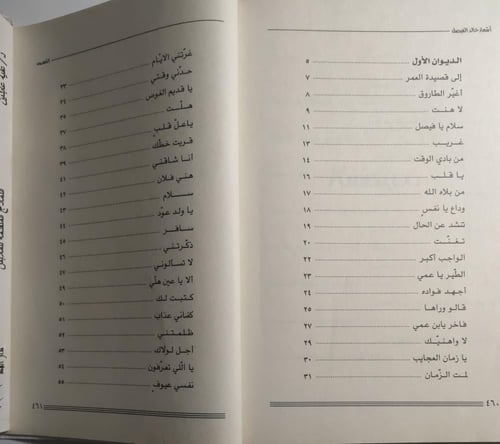 أشعار خالد الفيصل
الديوان الأول ٥
إلى قصيدة العمر ٧
أغيّر الطاروق ٨
لا هنت ٩
سلام يا فيصل ١١
غريب ١٣
من بادي الوقت ١٤
يا قلب ١٦
من بلاه الله ١٧
وداع يا نفس ١٨
تنشد عن الحال ١٩
تفنّت ٢٠
الواجب أكبر ٢٢
الطير يا عمي ٢٣
أجهد فواده ٢٤
قالو وراها ٢٥
فاخر يابن عمي ٢٧
لا واهنيّك ٢٩
يا زمان العجايب ٣٠
لمت الزّمان ٣١
٤٦٠
الفهرس
غرّتني الايّام ٣٣
حدّني وقتي ٣٤
يا قديم الغوص ٣٥
هلّت ٣٧
ياعلّ قلبٍ ٣٨
قريت خطّك ٣٩
أنا شاقني ٤١
هني فلان ٤٢
سلام ٤٣
يا ولد عوّد ٤٤
سافر ٤٥
ذكرتني ٤٦
لا تسألوني ٤٧
ألا يا عين هلّي ٤٩
كتبت لك ٥٠
كفاني عذاب ٥١
ظلمتني ٥٢
أجل لولاك ٥٣
يا اللي تعرفون ٥٤
نفسي عيوفٍ ٥٥
٤٦١